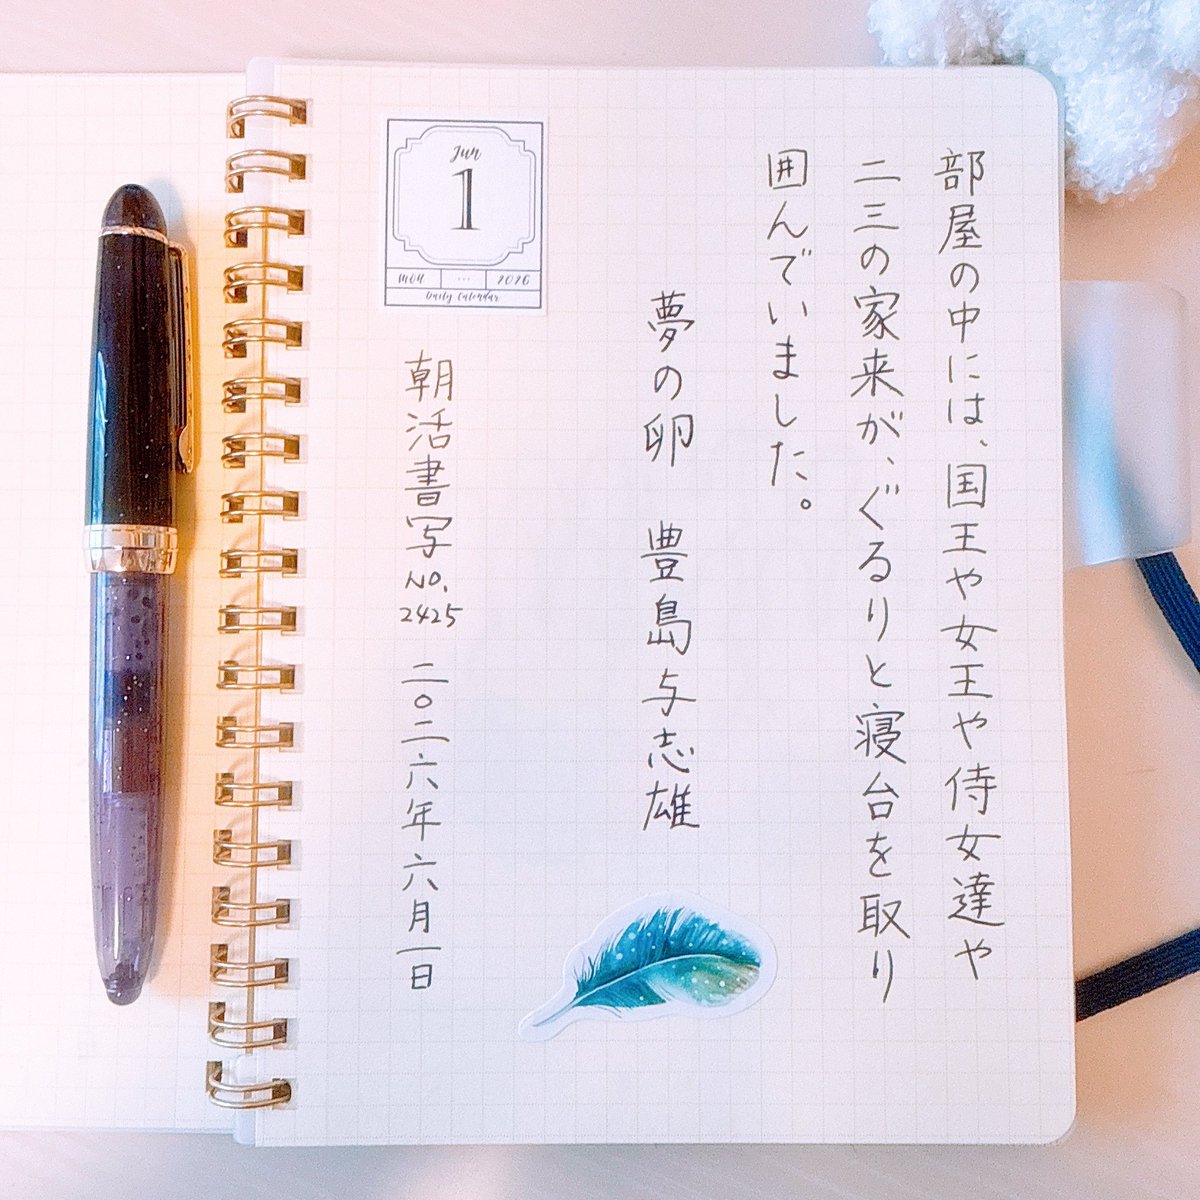 部屋の中には、国王や女王や侍女達や
二三の家来が、ぐるりと寝台を取り
囲んでいました。
夢の卵　豊島与志雄
Jun
1
Mon ... 2026
Daily Calendar
朝活書写No.2425　二〇二六年六月一日